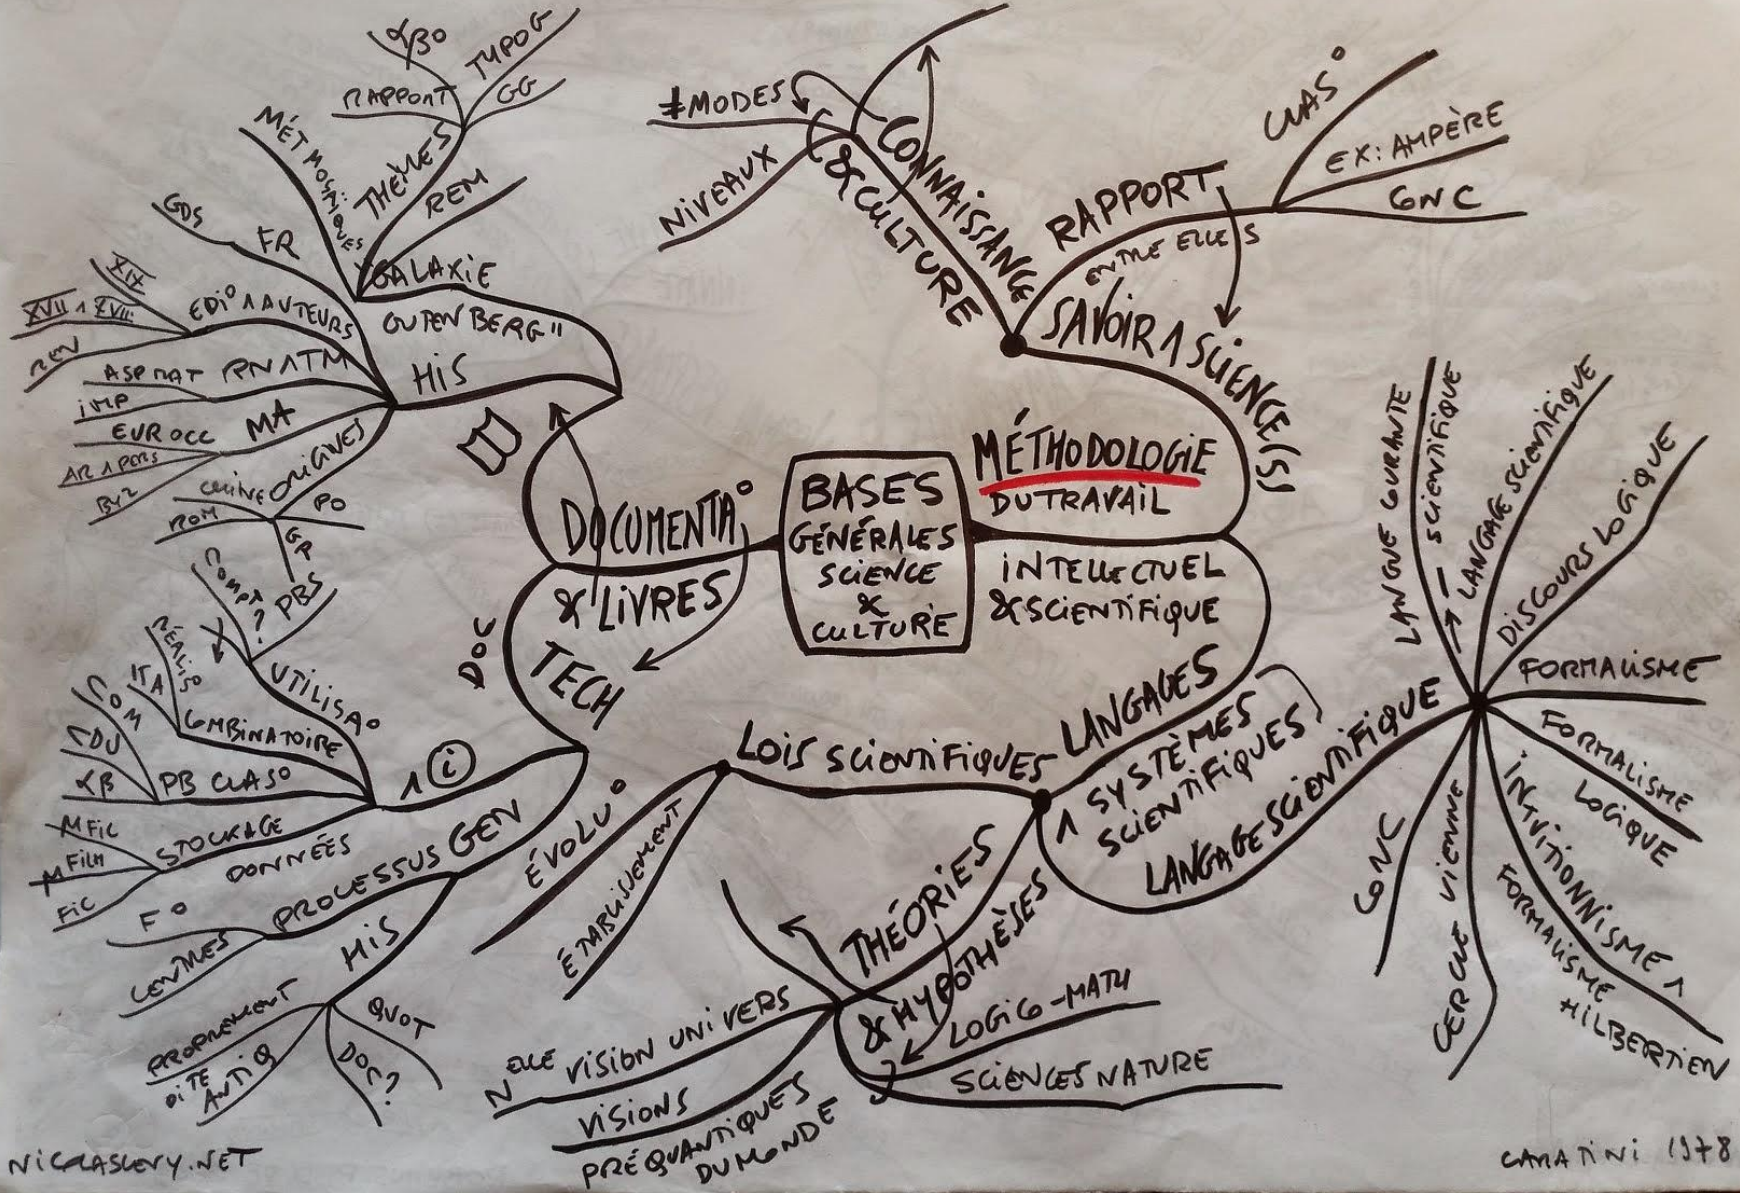 BASES
GÉNÉRALES
SCIENCE
&
CULTURE
MÉTHODOLOGIE
DU TRAVAIL
INTELLECTUEL
& SCIENTIFIQUE
SAVOIR ∧ SCIENCE(S)
CONNAISSANCE
& CULTURE
≠ MODES
NIVEAUX
RAPPORT
ENTRE ELLES
CLAS°
EX: AMPÈRE
GNC
LANGAGES
∧ SYSTÈMES
SCIENTIFIQUES
LANGAGE SCIENTIFIQUE
LANGUE COURANTE
→ — SCIENTIFIQUE
LANGAGE SCIENTIFIQUE
DISCOURS LOGIQUE
FORMALISME
FORMALISME
LOGIQUE
INTUITIONNISME ∧
FORMALISME
HILBERTIEN
CERCLE VIENNE
CONC
THÉORIES
& HYPOTHÈSES
LOGICO-MATH
SCIENCES NATURE
NELLE VISION UNIVERS
VISIONS
PRÉQUANTIQUES
DU MONDE
LOIS SCIENTIFIQUES
ÉVOLU°
ÉTABLISSEMENT
DOCUMENTA°
& LIVRES
HIS
"GALAXIE
GUTENBERG"
THÈMES
RAPPORT
TYPOG
GG
REM
MÉT MOSAÏQUES
FR
GDS
EDI° ∧ AUTEURS
XIX
XVII ∧ XVIII
REV
RN ∧ TM
ASP MAT
IMP
MA
EUR OCC
AR ∧ PERS
BYZ
ORIGINES
CHINE
ROM
PO
GR
PBS
TECH
DOC
∧ i
UTILISA°
COMPA
?
PBS
COMBINATOIRE
RÉALIS°
ITA
PB CLAS°
COM
CDU
αβ
STOCKAGE
DONNÉES
MFIC
MFILM
FIC
PROCESSUS GEN
F°
CENTRES
HIS
PROPREMENT
DITE
ANTIQ
DOC?
QUOT
NICOLASLEVY.NET
CARATINI 1978